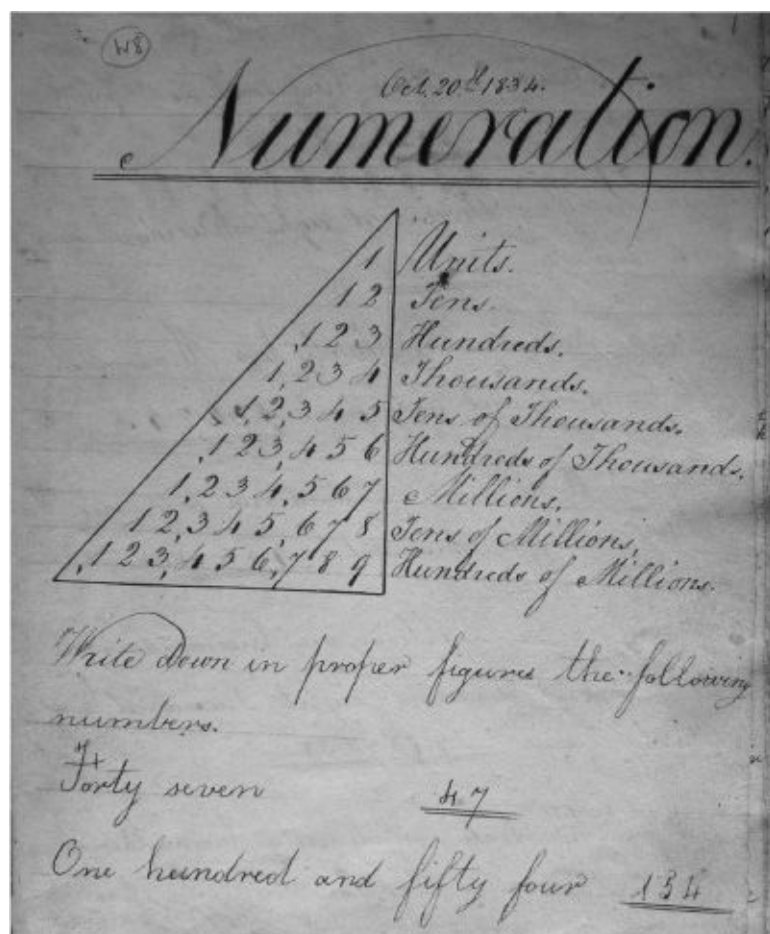 W8
Oct. 20th 1834.
Numeration.
1 Units.
12 Tens.
,123 Hundreds.
1,234 Thousands.
1,2,345 Tens of Thousands.
,123,456 Hundreds of Thousands.
1,234,567 Millions.
12,345,678 Tens of Millions,
,123,456,789 Hundreds of Millions.
Write Down in proper figures the following
numbers.
Forty seven 47
One hundred and fifty four 154